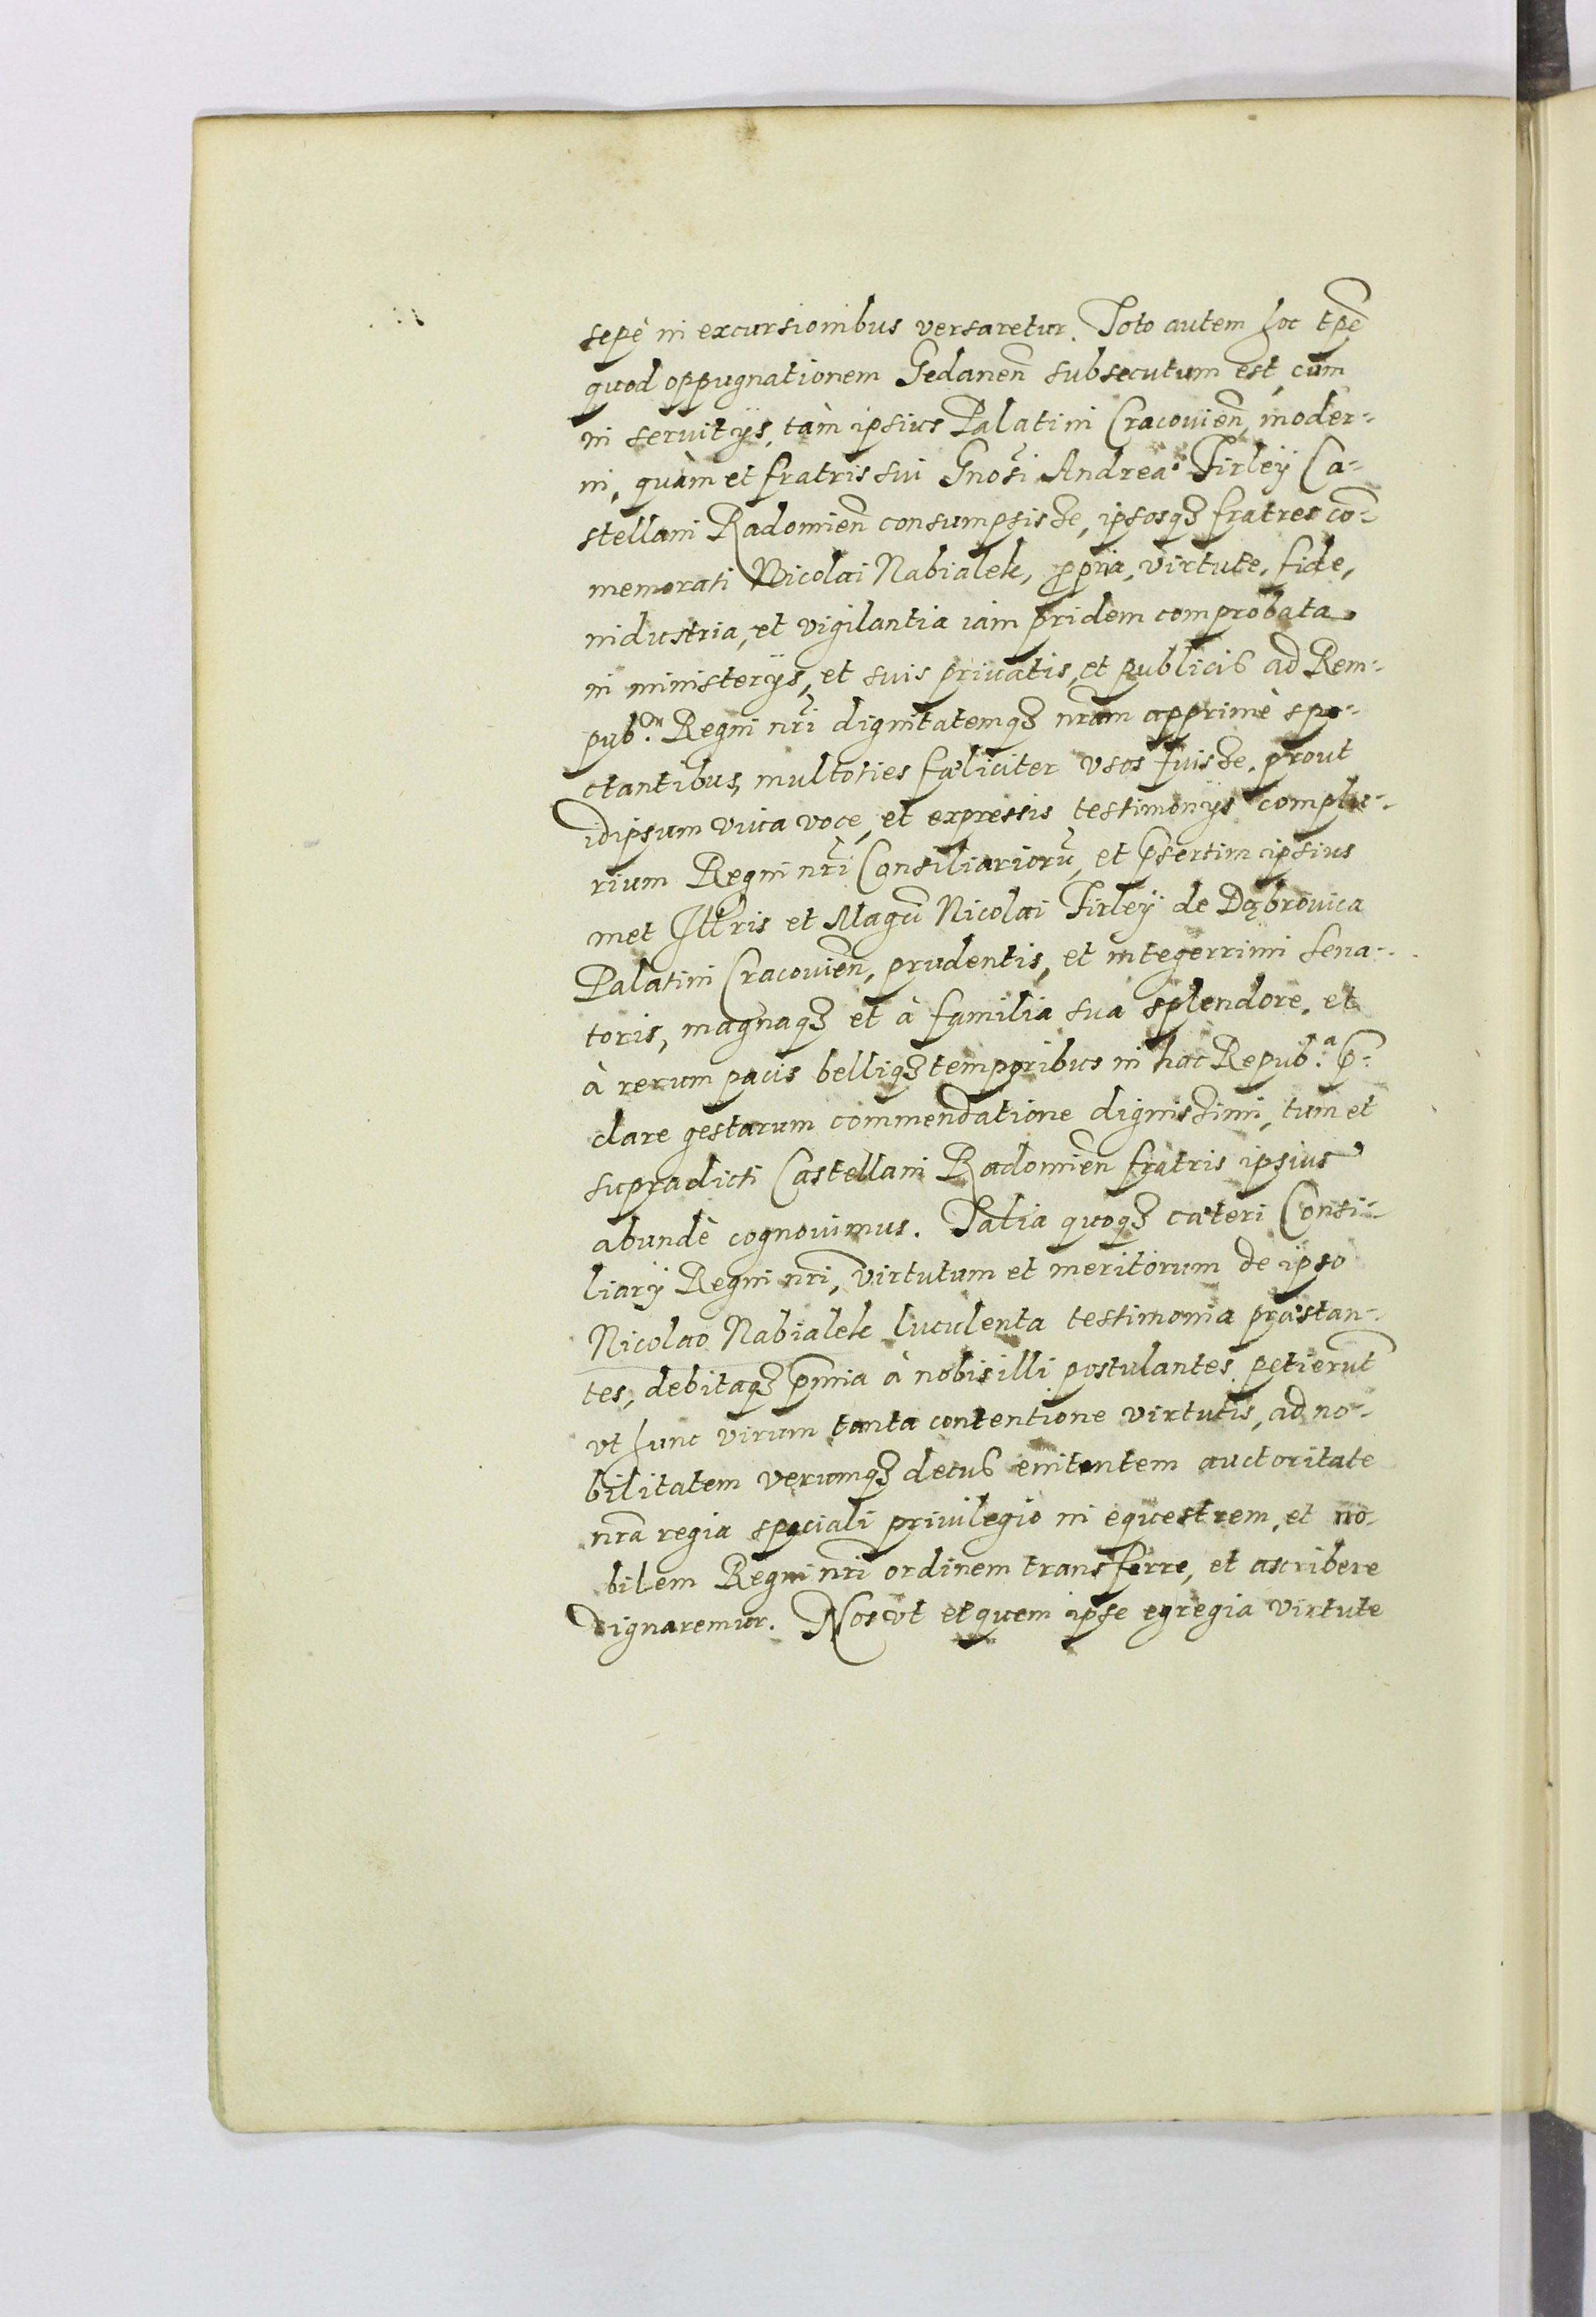 sepè in excursionibus versaretur. Toto autem hoc tp̃e
quod oppugnationem Gedanen̄ subsecutum est, cum
in servitÿs, tàm ipsius Palatini Cracovien̄, moder-
ni, quàm et fratris sui Gnosi Andreæ Firleÿ Ca-
stellani Radomien̄ consumpsisse, ipsosqȝ fratres co̅-
memorati Nicolai Nabialek, ꝓpria, virtute, fide,
industria, et vigilantia iam pridem comprobata
in ministerÿs, et suis privatis, et publicis ad Rem-
pub.m Regni nr̃i dignitatemqȝ nr̃am apprimè spe-
ctantibus, multoties fæliciter vsos fuisse, prout
idipsum viva voce, et expressis testimonÿs complu-
rium Regni nr̃i Consiliariorũ, et p̃sertim ipsius
met Illr̃is et Magci Nicolai Firleÿ de Dąbrovica
Palatini Cracovien̄, prudentis, et integerrimi sena-
toris, magnaqȝ et à familia sua splendore, et
à rerum pacis belliqȝ temporibus in hac Repub.a p̃-
clare gestarum commendatione dignissimi, tum et
supradicti Castellani Radomien̄ fratris ipsius
abundè cognovimus. Talia quoqȝ cæteri Consi-
liarÿ Regni nr̃i, virtutum et meritorum de ipso
Nicolao Nabialek luculenta testimonia præstan-
tes, debitaqȝ p̃mia à nobis illi postulantes, petierũt
vt hunc virum tanta contentione virtutis, ad no-
bilitatem verumqȝ decus enitentem auctoritate
nr̃a regia speciali privilegio in equestrem, et no-
bilem Regni nr̃i ordinem transferre, et ascribere
dignaremur. Nos vt et quem ipse egregia virtute